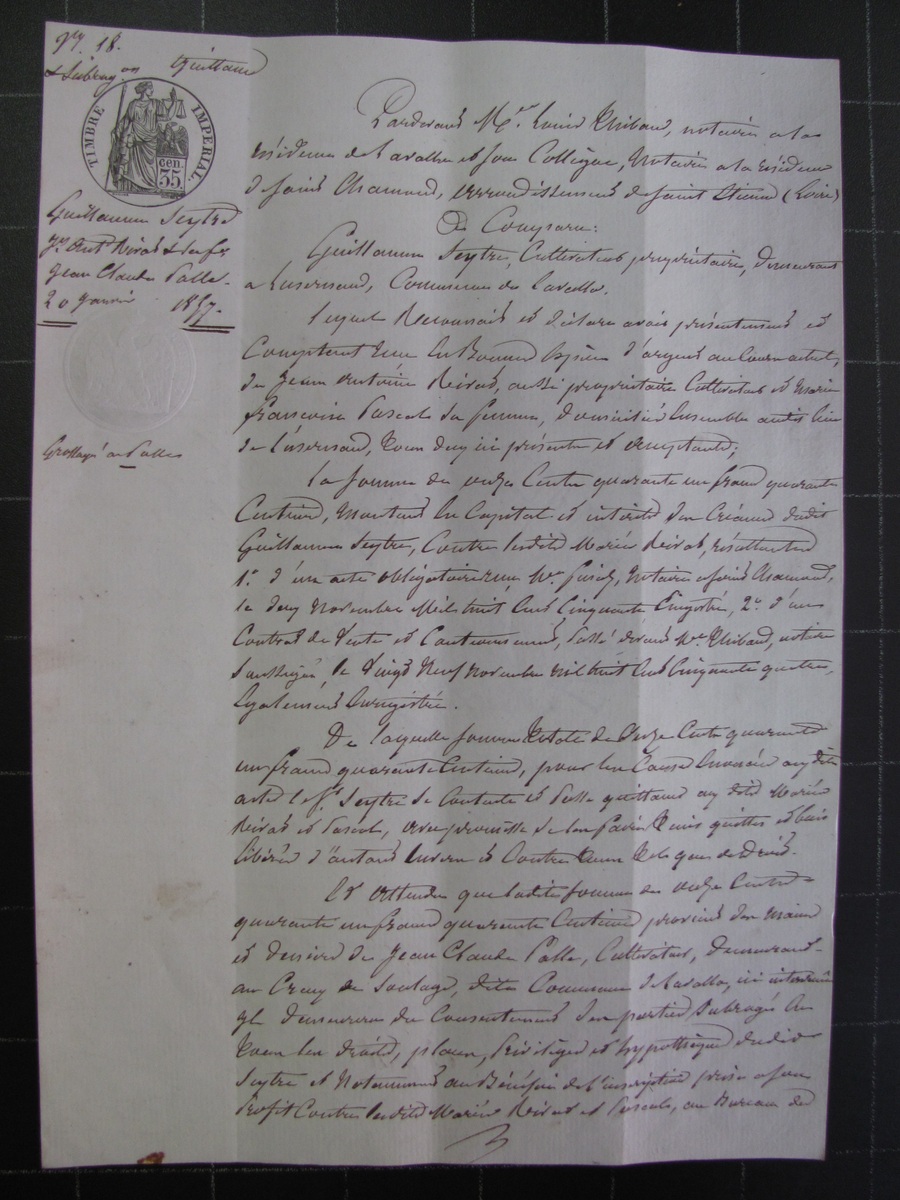 18.
Quittance
TIMBRE IMPERIAL
cen. 35
Guillaume Seytre
Jean Claude Palle
20 Janvier 1857.
Pardevant Me Louis Thibaud, notaire a la
résidence de Lavalla et son Collègue, Notaire a la résidence
de Saint Chamond, arrondissement de Saint Etienne (Loire)
Est Comparu:
Guillaume Seytre, Cultivateur propriétaire, demeurant
a Luzernaud, Commune de Lavalla.
Lequel Reconnait et déclare avoir présentement et
Comptant reçu en Bonnes Espèces d'argent au Cours actuel,
de Jean Antoine Rivat, aussi propriétaire Cultivateur et Marie
françoise Pascal sa femme, domiciliés Ensemble audit lieu
de Luzernaud, tous deux ici présents et acceptants;
La somme de onze Cents quarante un francs quarante
Centimes, montant en Capital et intérêts des Créances dudit
Guillaume Seytre, Contre lesdits Mariés Rivat, résultantes
1º d'un acte obligatoire reçu Me Notaire a Saint Chamond,
le deux Novembre Mil huit Cent Cinquante Enregistré, 2º d'un
Contrat de Vente et Cautionnement, passé devant Me Thibaud, notaire
Soussigné, le Vingt Neuf Novembre mil huit Cent Cinquante quatre,
Egalement Enregistré.
De laquelle somme totale de Onze Cents quarante
un francs quarante Centimes, pour les Causes Enoncées auxdits
actes le sr Seytre se Contente et passe quittance aux dits Mariés
Rivat et Pascal, avec promesse de les faire tenir quittes et
libérés d'autant Envers et Contre tous tels que de Droit.
Et attendu que ladite somme de onze Cents
quarante un francs quarante Centimes provient des mains
et deniers de Jean Claude Palle, Cultivateur, demeurant
au Creux de Soulage, dite Commune de Lavalla, ici intervenu
il demeurera du Consentement des parties Subrogé En
tous les droits, places, Privilèges et hypothèques dudit
Seytre et Notamment au Bénéfice de l'inscription prise a son
Profit Contre lesdits Mariés Rivat et Pascal, au Bureau des